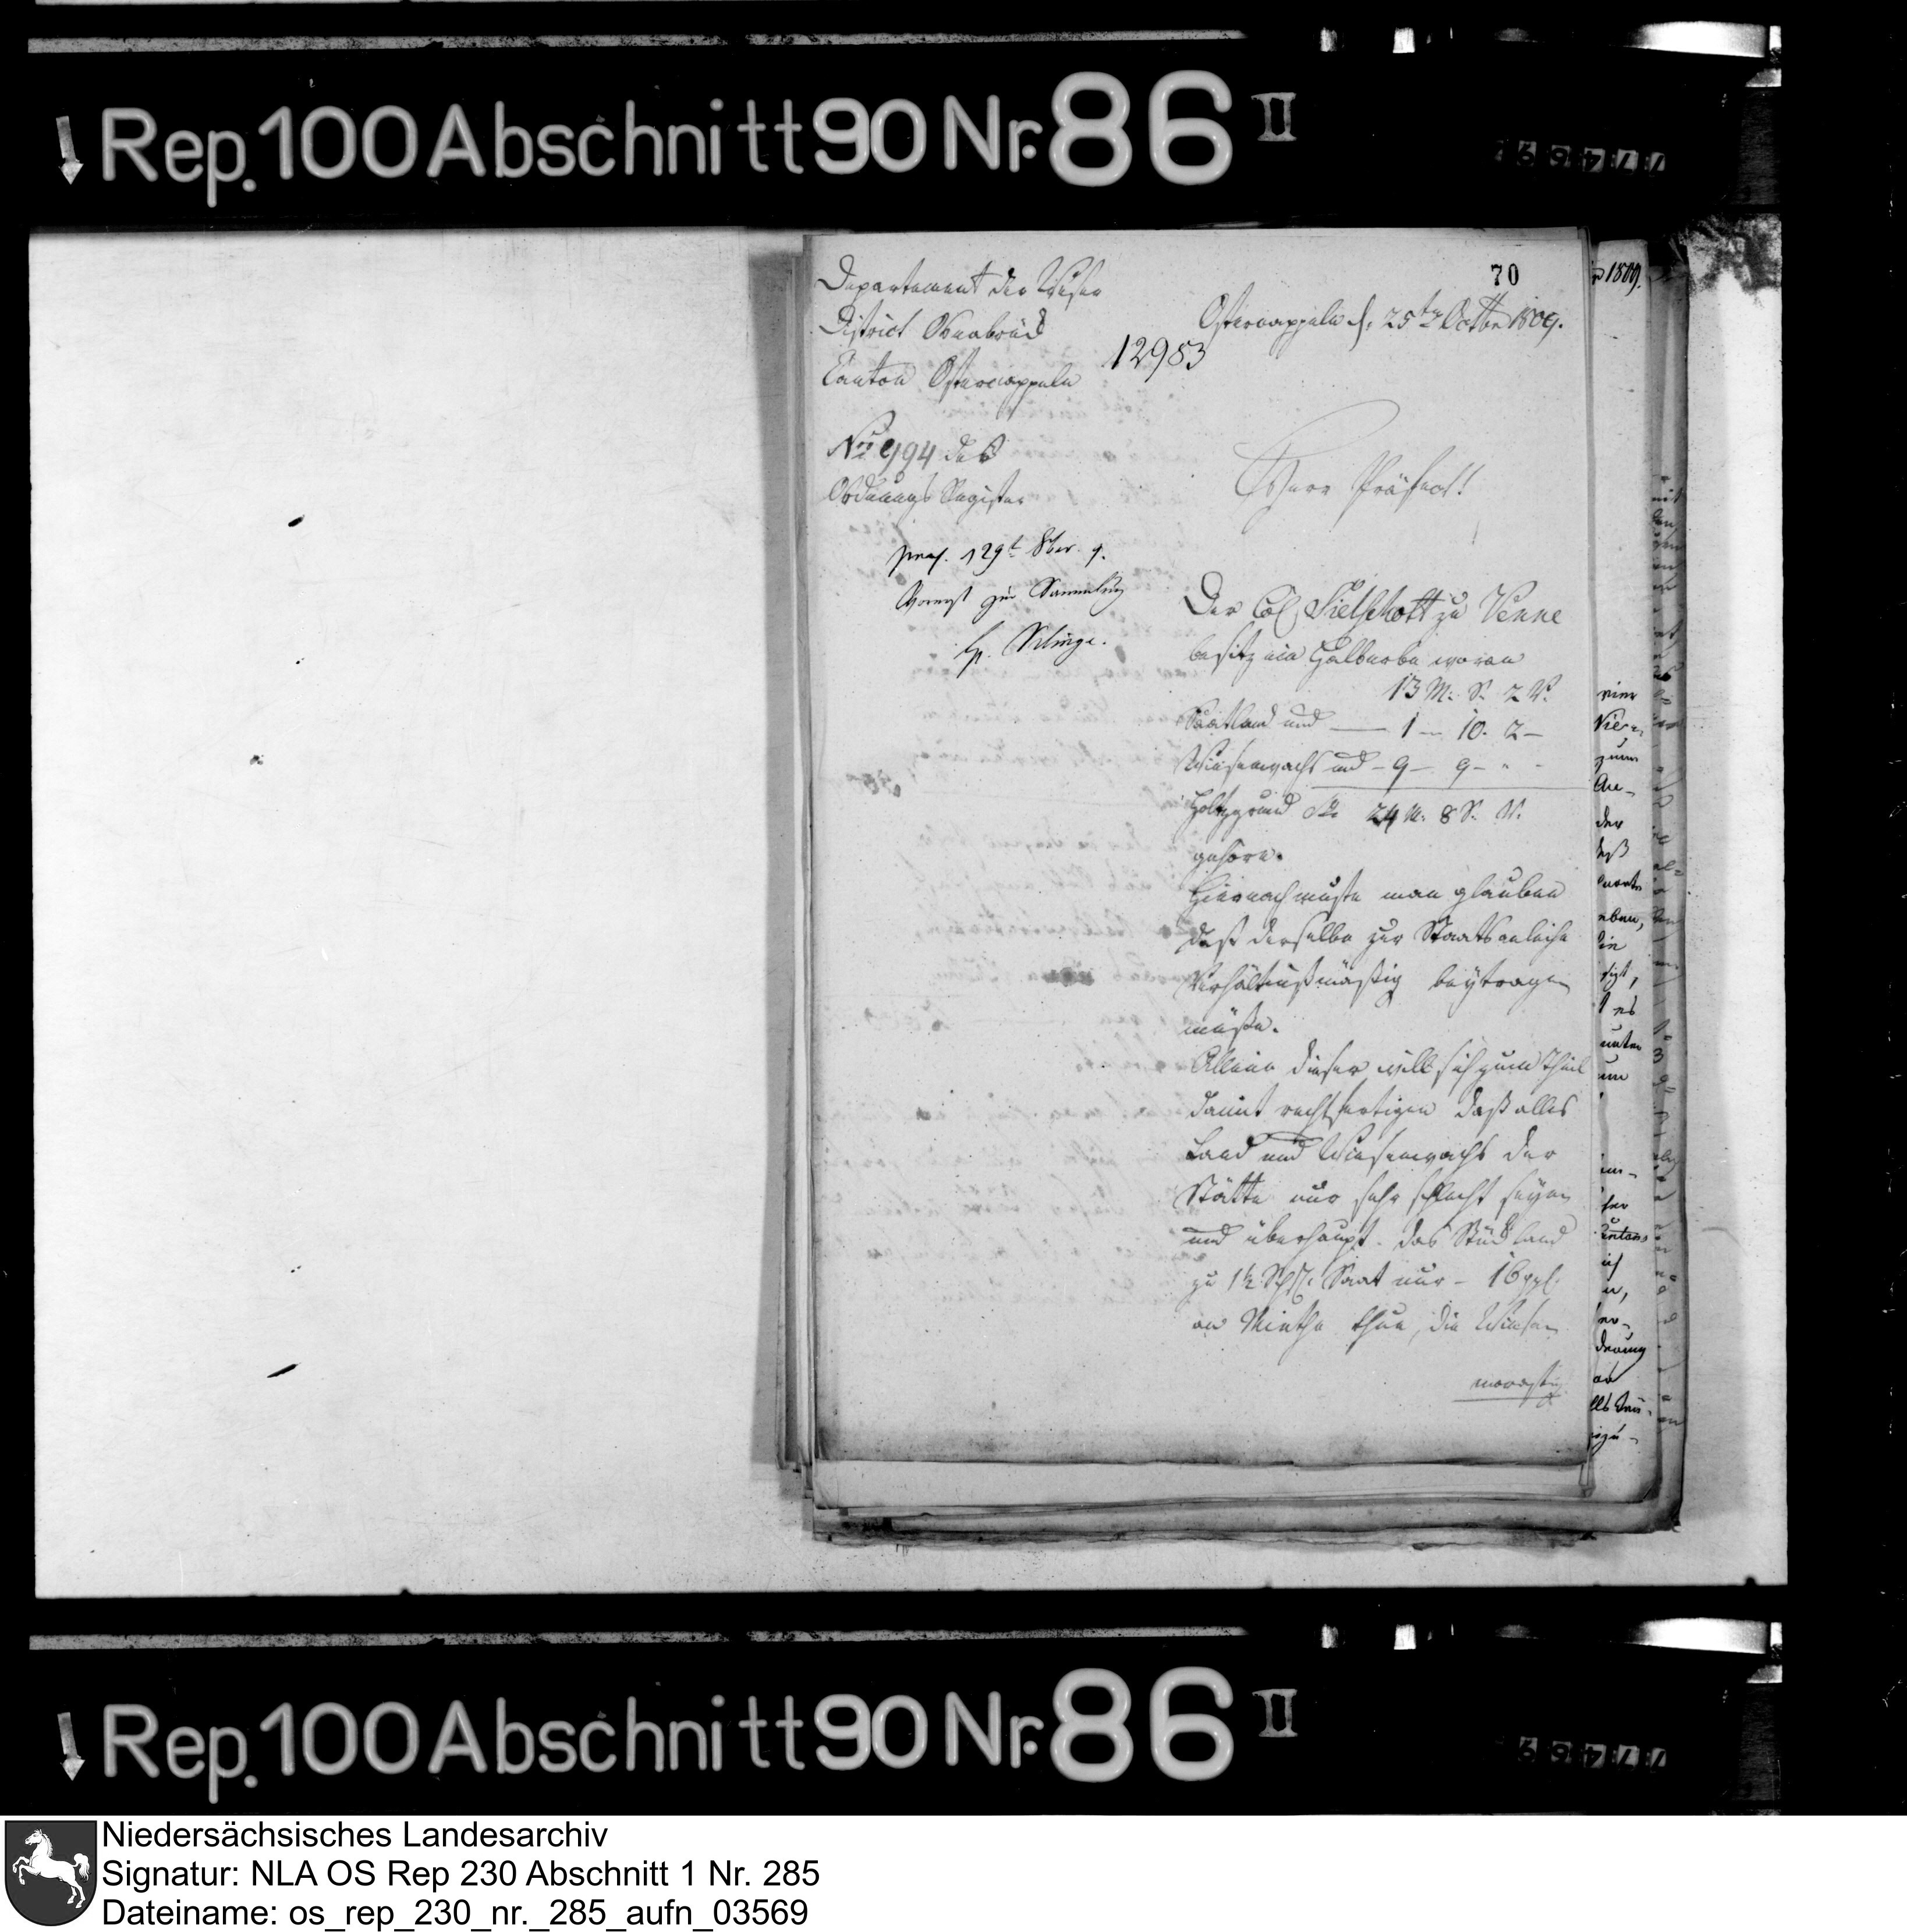 Rep. 100 Abschnitt 90 Nr. 86 II
70
Departement der Weser
District Osnabrück
Canton Ostercappeln
Ostercappeln d. 25ten Octbr 1809.
12983
No 994 des
Ordnungs Register
Herr Präfect!
praes. 29t 8br. 9.
zur Sammlung
Der Col. Sielschott zu Venne
besitz ein Halberbe woran
13 M. S. 2 V.
Saatland und — 1 — 10. 2 —
Wiesenwachs und — 9 — 9 — " -
Holzgrund 24 M. 8 S. V.
gehöre.
Hiernach müste man glauben
daß derselbe zur Staatsanleihe
Verhältnißmäßig beÿtragen
müße.
Allein dieser will sich zum Theil
damit rechtfertigen daß alles
Land und Wiesenwachs der
Stätte nur sehr schlecht seÿen
und überhaupt das Stück Land
zu 1½ Schfl. Saat nur — 16 ggl.
an Miethe thue, die Wiesen
morastig
1809.
Rep. 100 Abschnitt 90 Nr. 86 II
Niedersächsisches Landesarchiv
Signatur: NLA OS Rep 230 Abschnitt 1 Nr. 285
Dateiname: os_rep_230_nr._285_aufn_03569